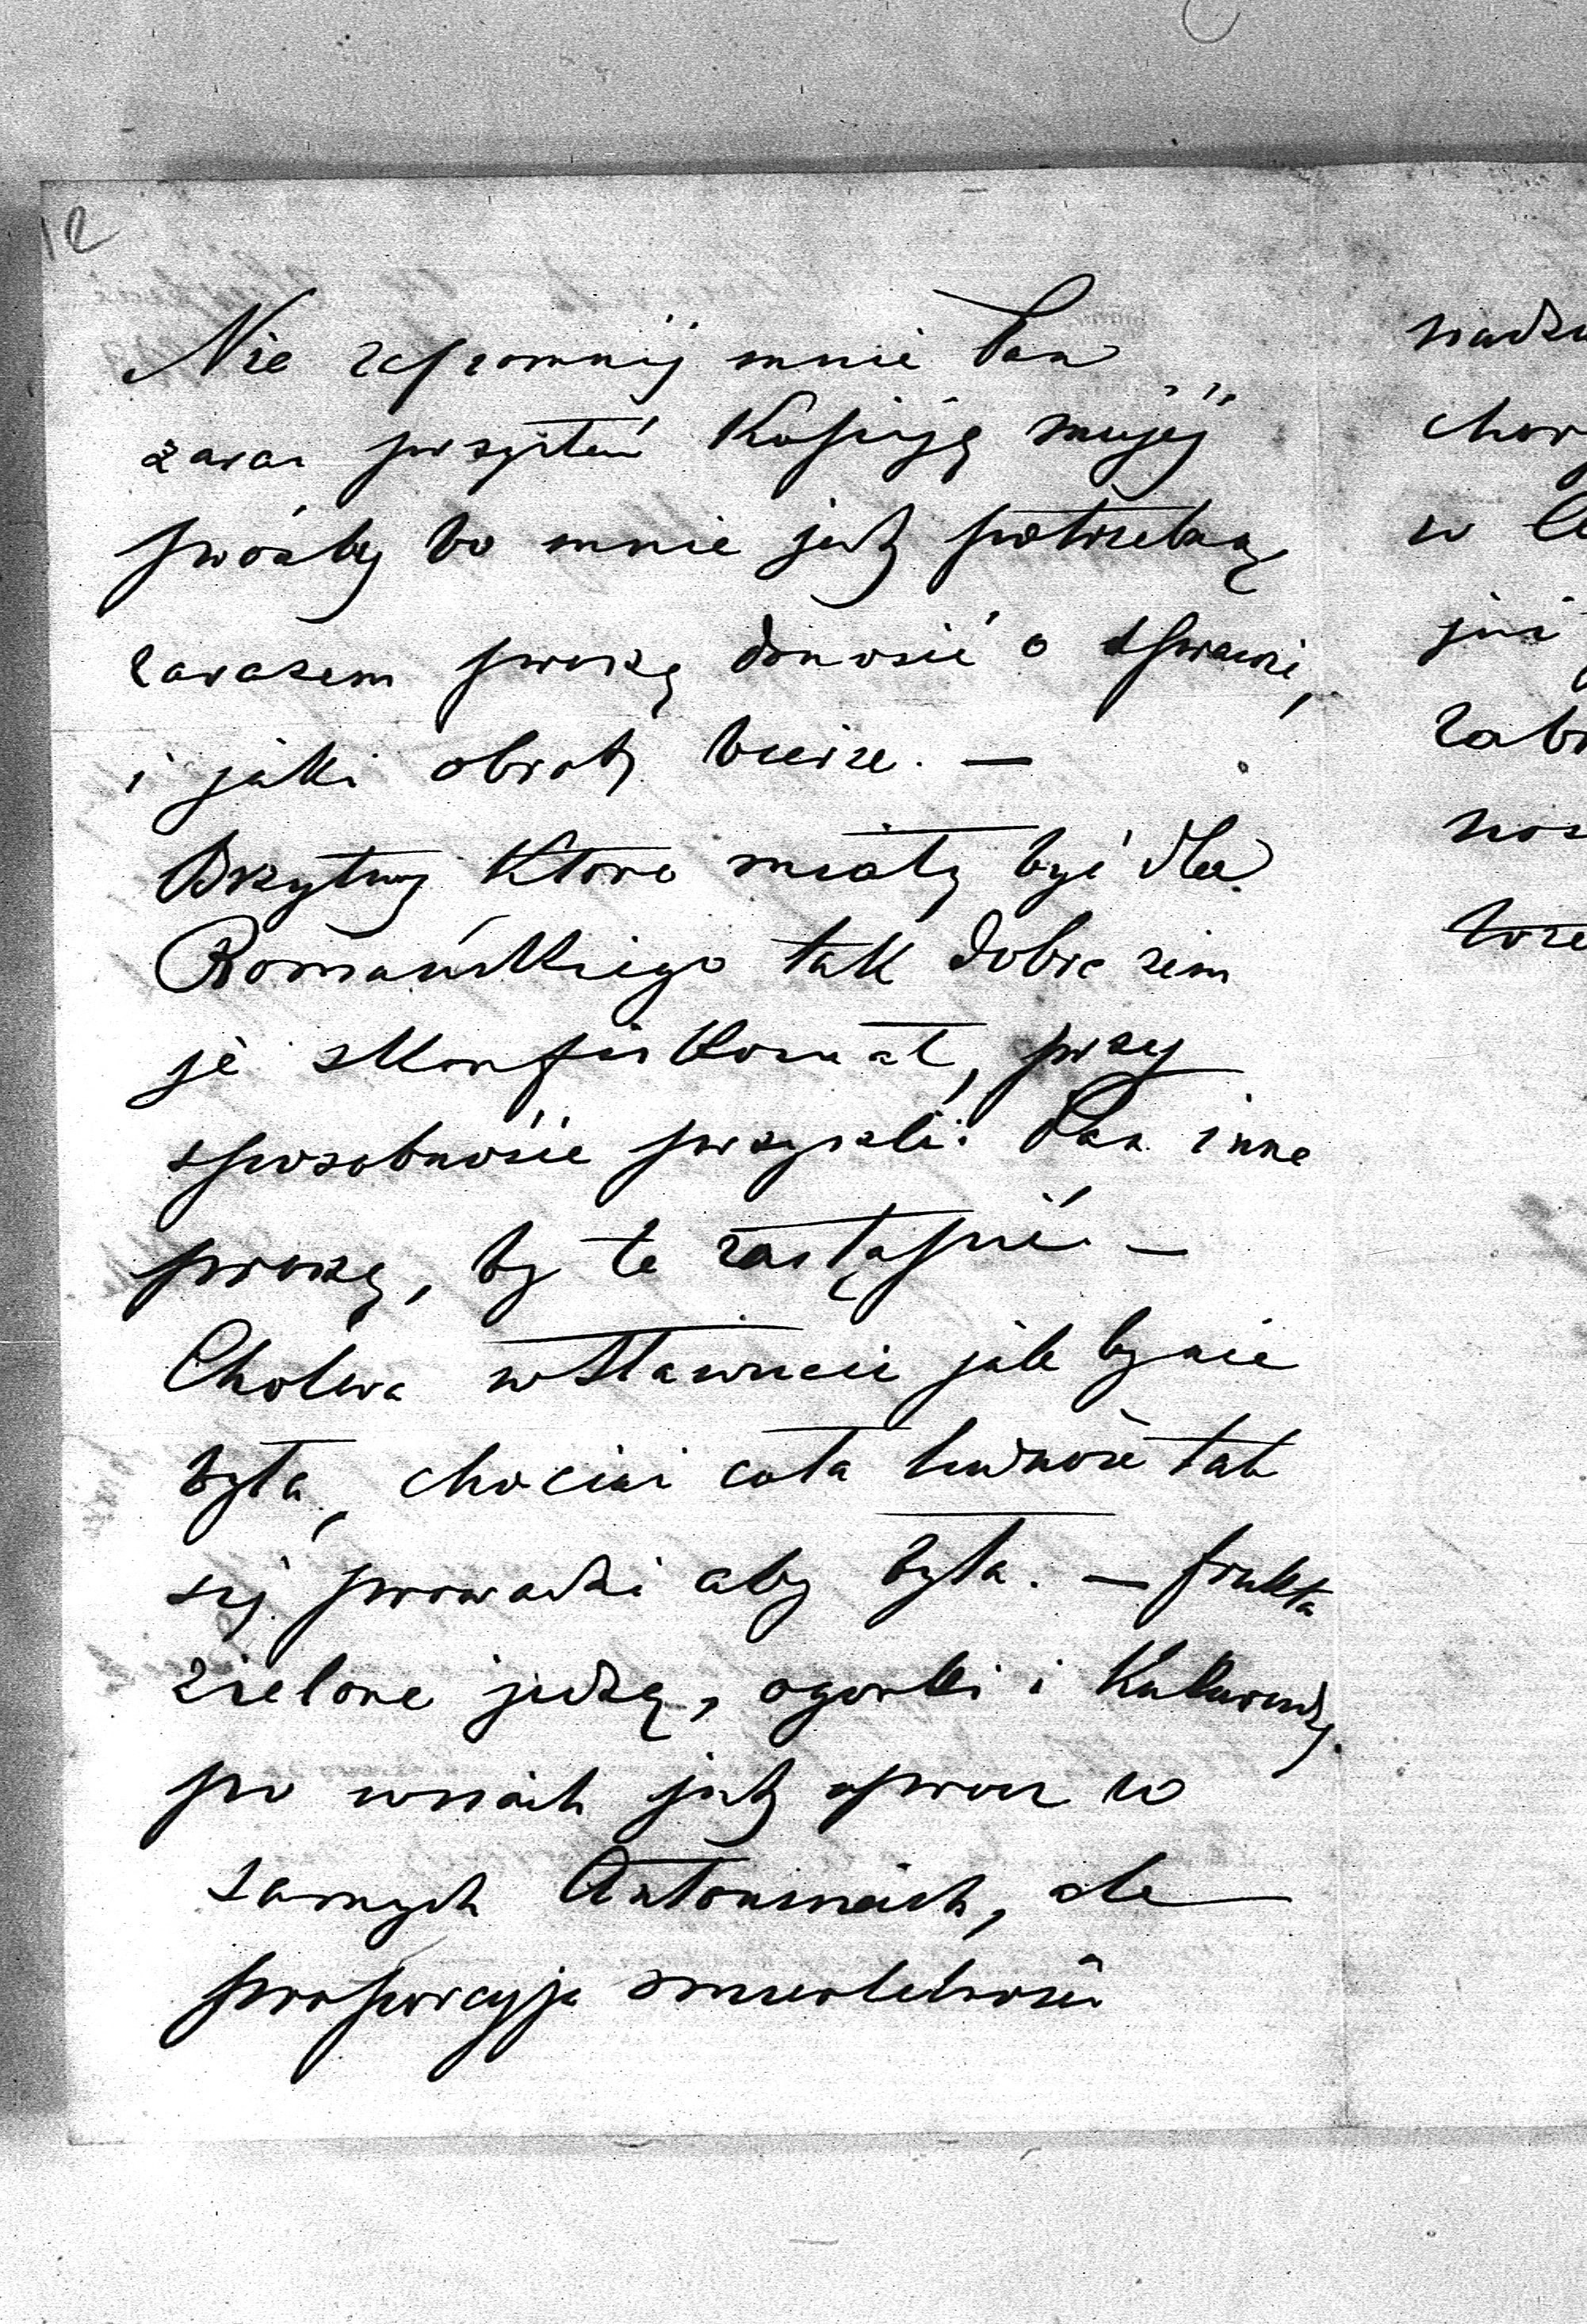 12
Nie zapomnij mnie Pan
zaraz przysłać Kopiję mojej
prośby bo mnie jest potrzebną
zarazem proszę donosić o sprawie,
i jaki obrot bierze. —
Brzytwy które miały być dla
Romańskiego tak dobre żem
je skonfiskował, przy
sposobnoście przyszli Pan inne
proszę, by te zastąpić —
Cholera w Sławucie jak by nie
była, chociaż cała ludność tak
się prowadzi aby była. — frukta
zielone jedzą, ogorki i Kukurudzę.
po wsiach jest oprocz w
samych Antoninach, ale
proporcyja śmiertelności
chor
w
już
zabr